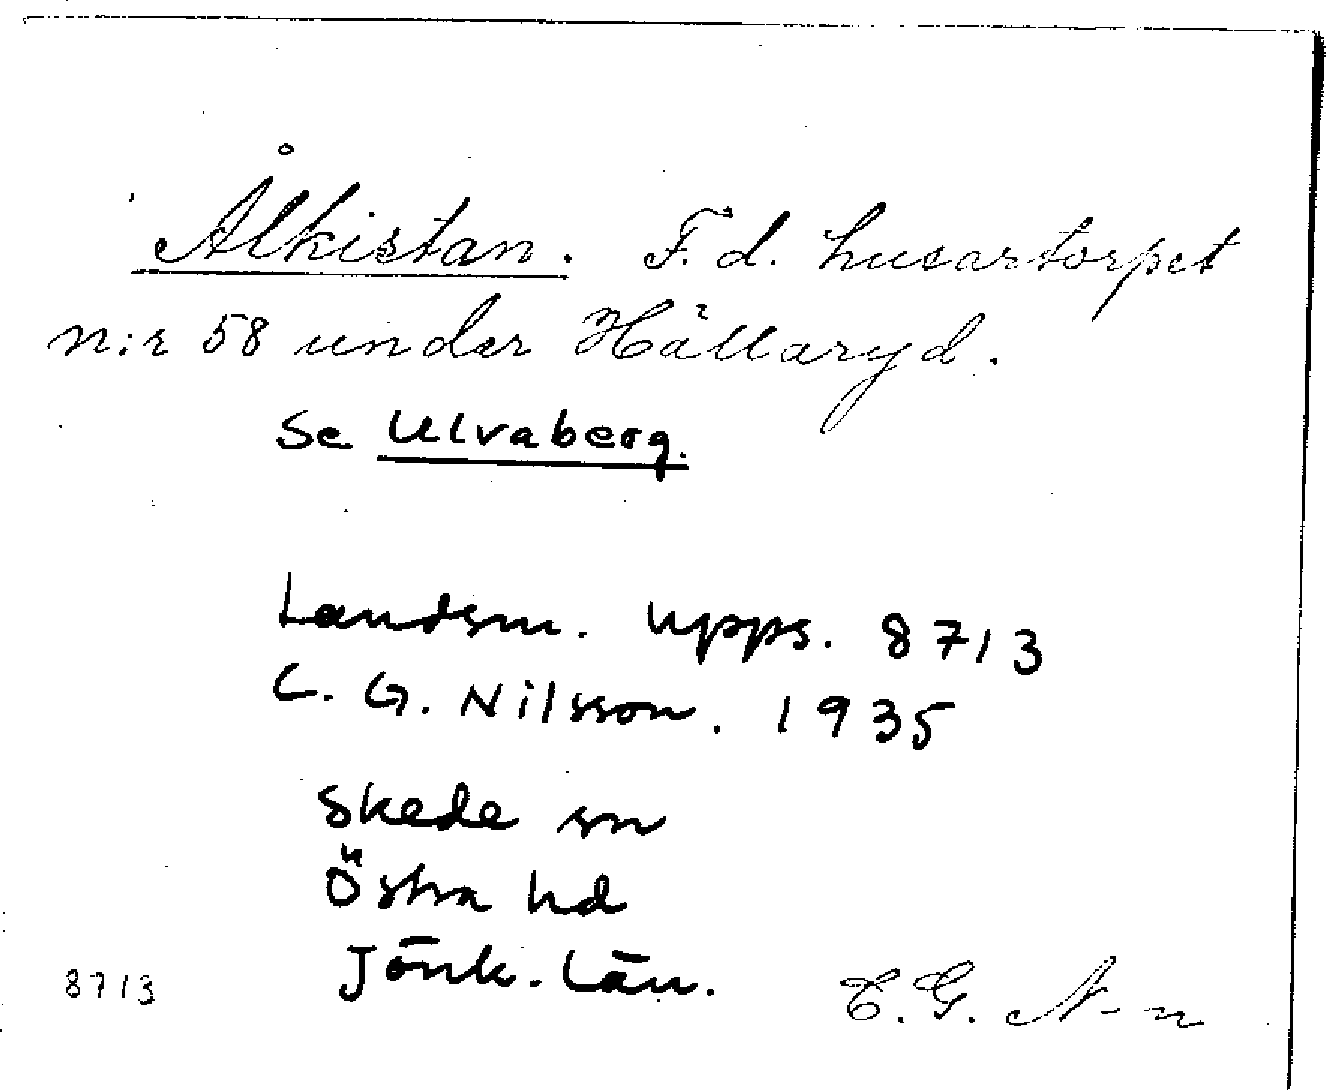 Ålkistan. F.d. husartorpet
n:r 58 under Hällaryd.
Se Ulvaberg.
Landsm. Upps. 8713
C. G. Nilsson. 1935
Skede sn
Östra hd
Jönk. län.
8713 C.G. N-n